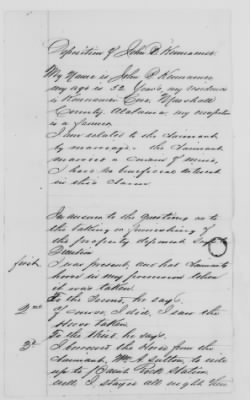 Deposition of John B. Kennamer
My Name is John B Kennamer
my age is 52 years, my residence
is Kennamer Cove, Marshall
County, Alabama, my occupation
is a farmer
I am related to the claimant
by marriage - the claimant
married a cousin of mine,
I have no beneficial interest
in this claim
In answer to the questions as to
the taking or furnishing of
the property deponent says
first I was present, one hot
horse in my possession when
it was taken.
2nd To the Second, he says,
of course, I did, I saw the
Horse taken
3d To the third, he says,
I borrowed the Horse from the
claimant, Mr. Sutton, to ride
up to Paint Rock Station
and I stayed all night